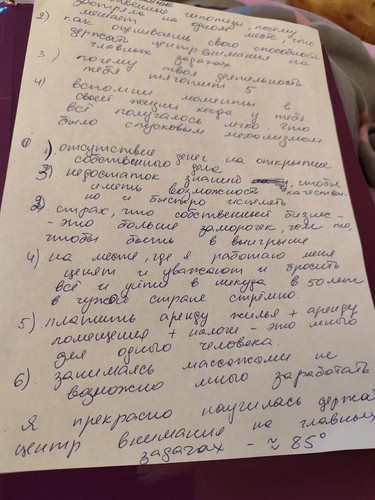 гипотезы, почему
застряла на одном месте, что
мешает
2) как оцениваешь свою способность
держать центр внимания на
главных задачах
3.) почему твоя деятельность
тебя тяготит 5
4) вспомни моменты в
своей жизни когда у тебя
всё получалось легко. Что
было спусковым механизмом
1) отсутствие
собственных денег на открытие
дела
3) недостаток знаний, чтобы
иметь возможность качествен-
но и быстро исцелять
2) страх, что собственный бизнес -
- это больше заморочек, чем то,
чтобы быть в выигрыше
4) на месте, где я работаю меня
ценят и уважают и бросить
всё и уйти в никуда в 50 лет
в чужой стране стрёмно.
5) платить аренду жилья + аренду
помещения + налоги - это много
для одного человека.
6) занимаясь массажами не
возможно много заработать
Я прекрасно научилась держать
центр внимания на главных
задачах - ≈ 85°